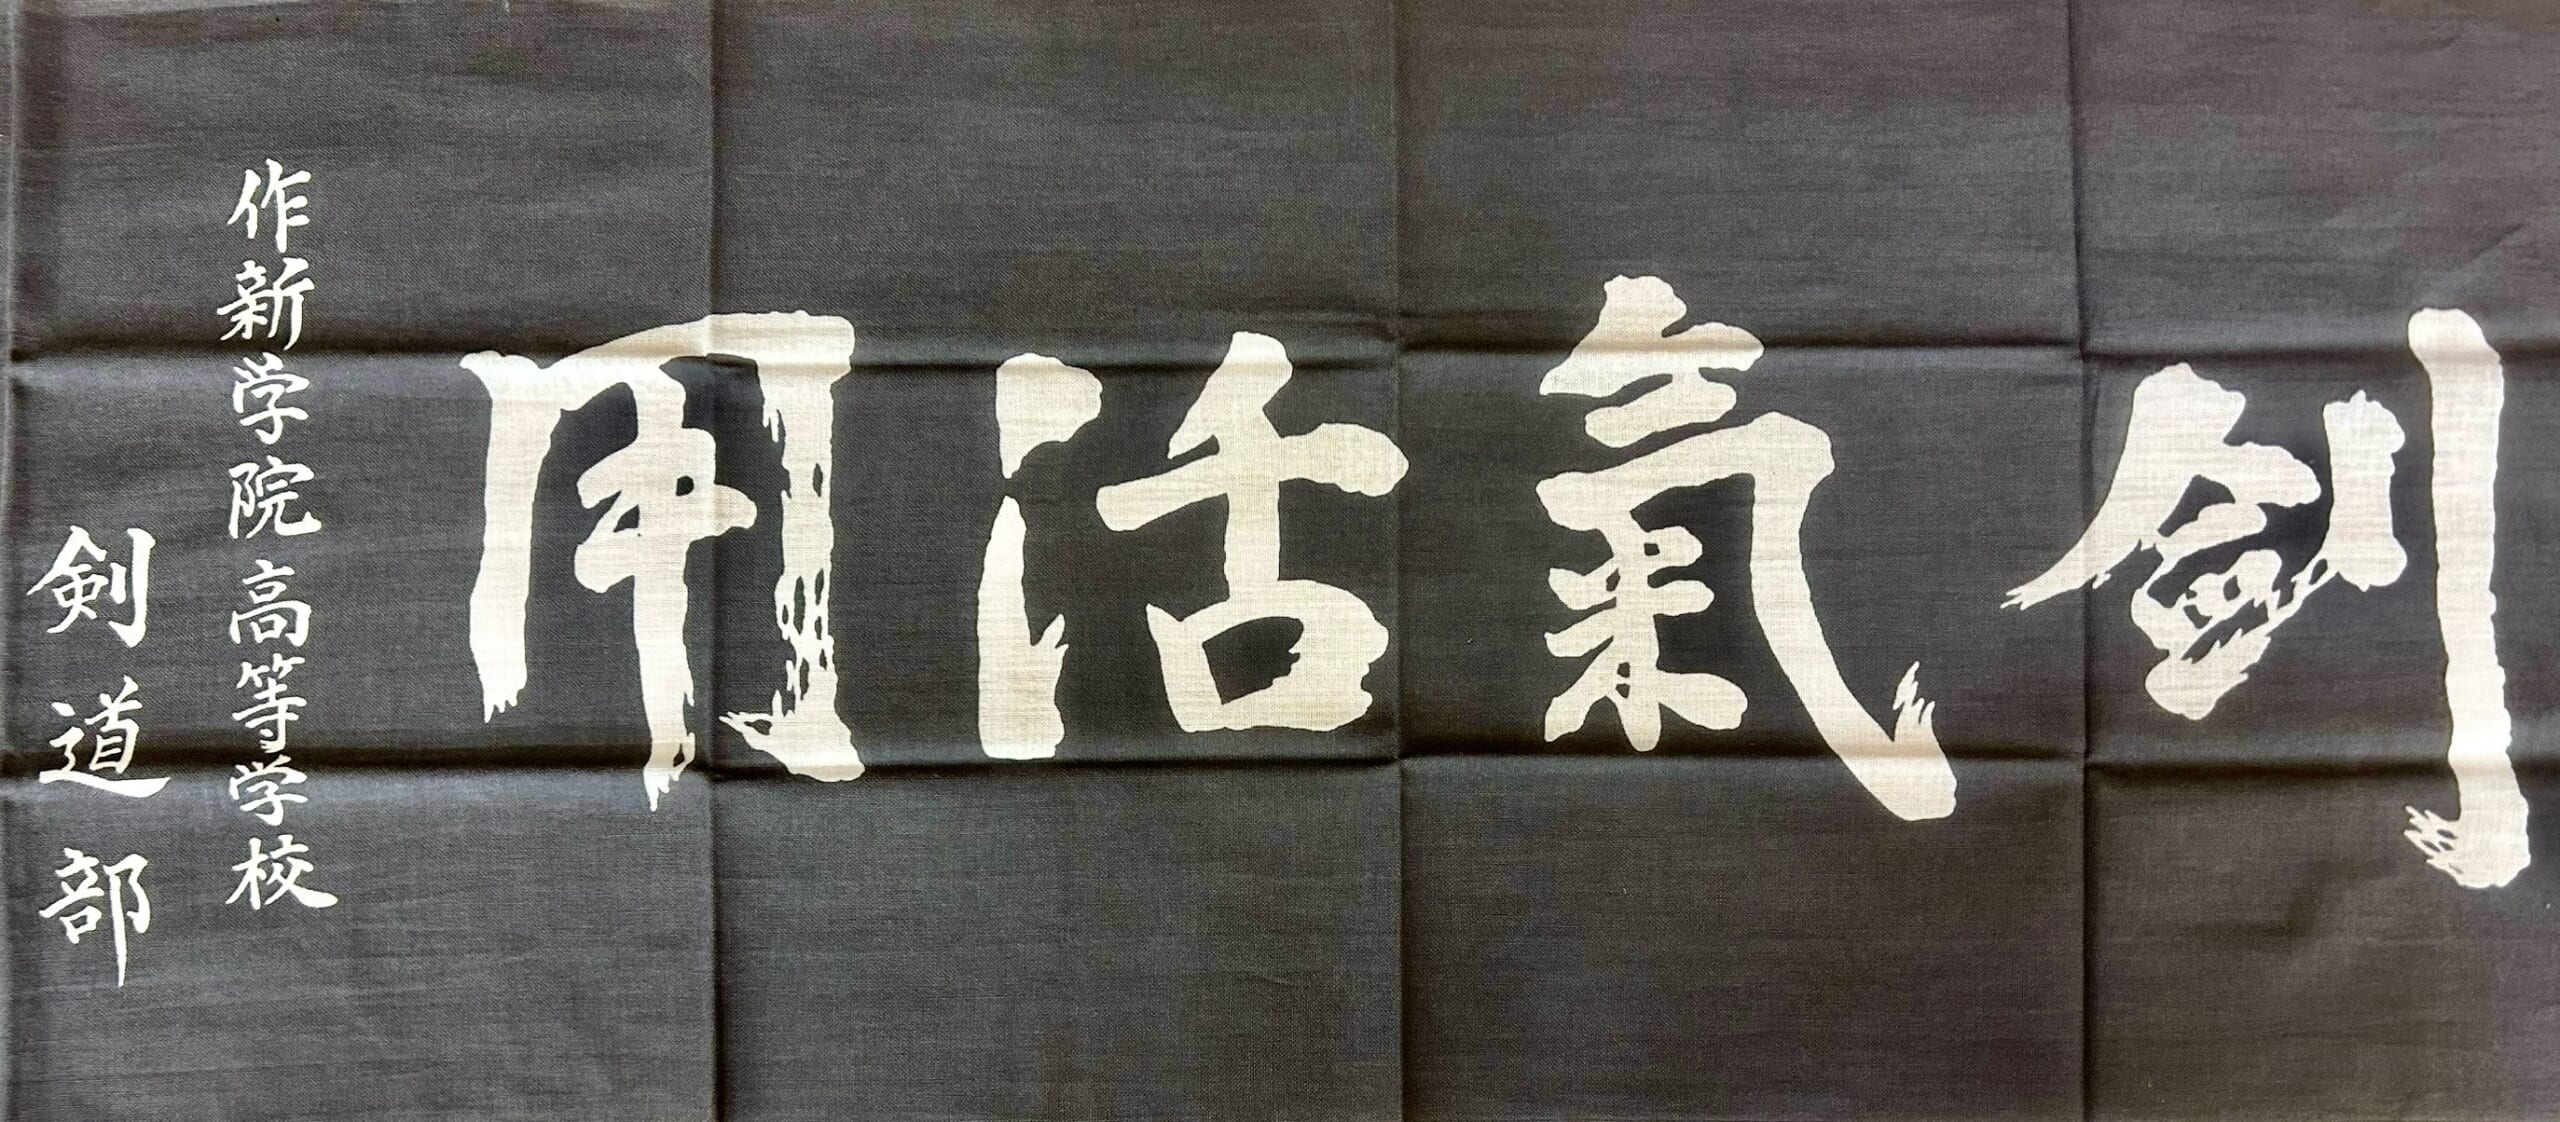 剣氣活用
作新学院高等学校
剣道部